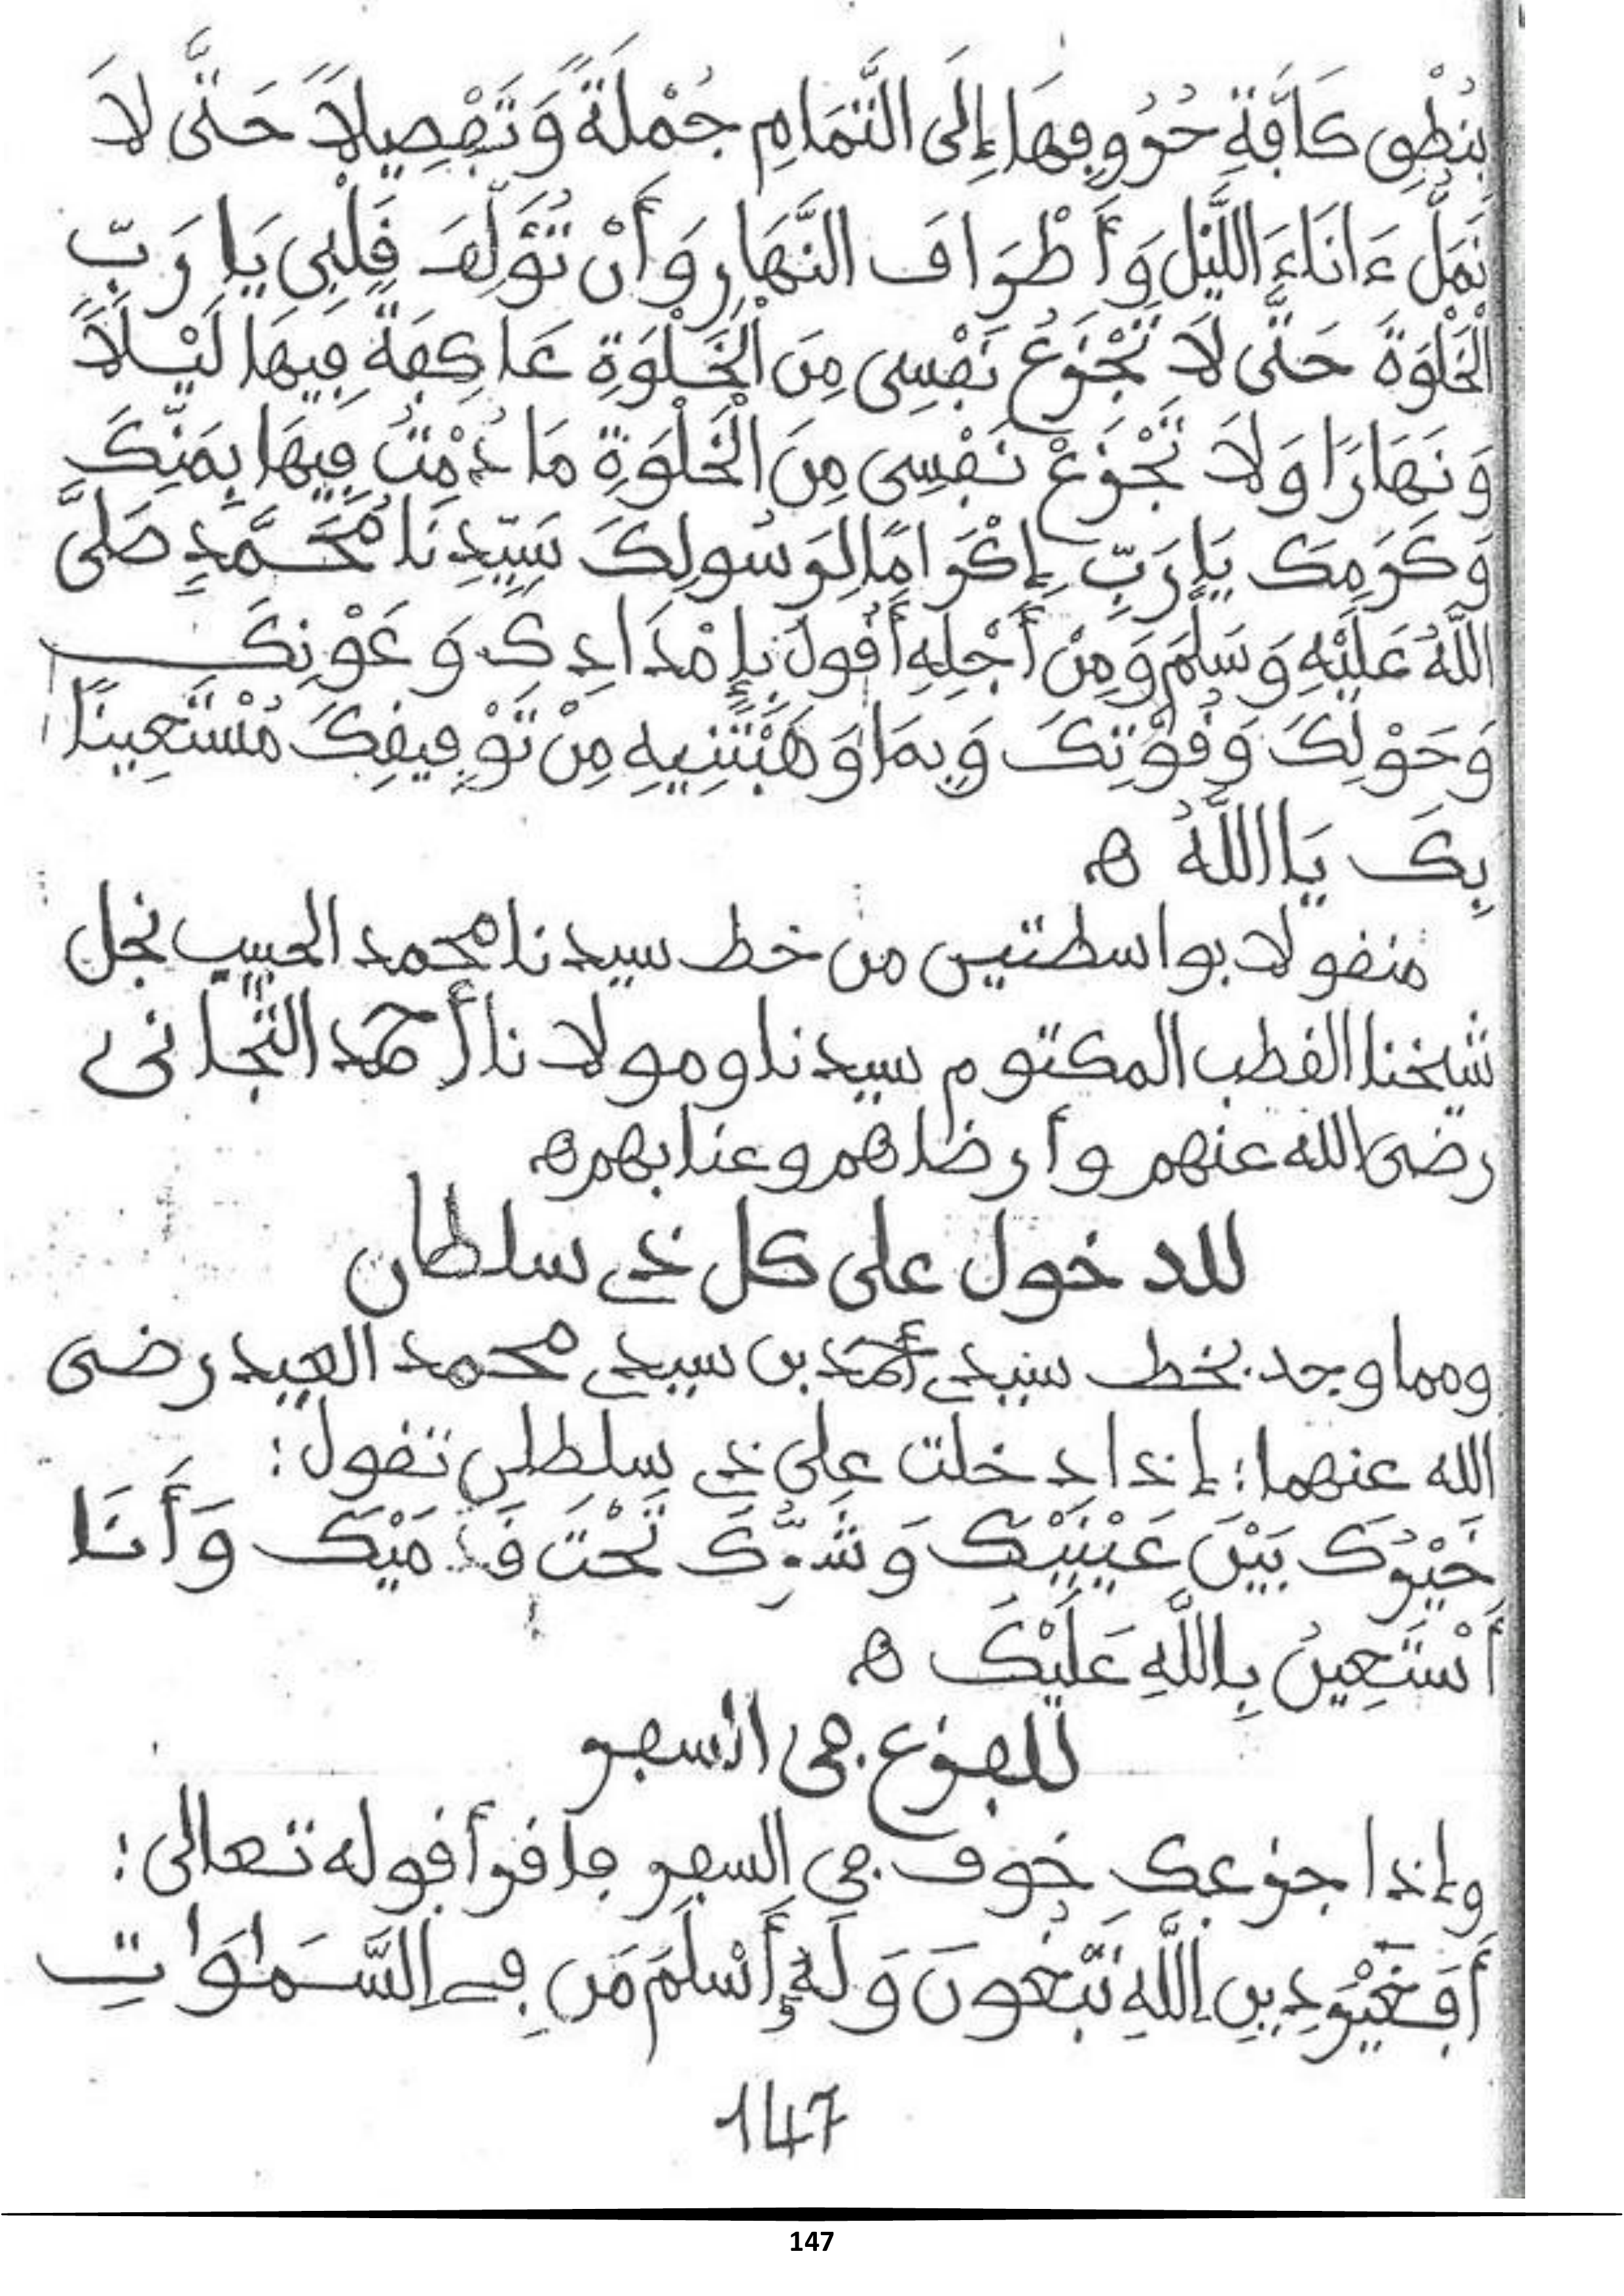 بِنُطْقِ كَآفَّةِ حُرُوفِهَا إِلَى التَّمَامِ جُمْلَةً وَتَفْصِيلاً حَتَّى لاَ
نَمَلَّ ءَانَاءَ اللَّيْلِ وَأَطْرَافَ النَّهَارِ وَأَنْ تُؤَلِّفَ قَلْبِي يَا رَبِّ
الْخَلْوَةَ حَتَّى لاَ تَجْزَعُ نَفْسِي مِنَ الْخَلْوَةِ عَاكِفَةً فِيهَا لَيْلاً
وَنَهَارًا وَلاَ تَجْزَعْ نَفْسِي مِنَ الْخَلْوَةِ مَا دُمْتُ فِيهَا بِمَنِّكَ
وَكَرَمِكَ يَا رَبِّ إِكْرَامًا لِرَسُولِكَ سَيِّدِنَا مُحَمَّدٍ صَلَّى
اللَّهُ عَلَيْهِ وَسَلَّمَ وَمِنْ أَجْلِهِ أَقُولُ بِإِمْدَادِكَ وَعَوْنِكَ
وَحَوْلِكَ وَقُوَّتِكَ وَبِمَا وَهَبْتَنِيهِ مِنْ تَوْفِيقِكَ مُسْتَعِينًا
بِكَ يَا اللَّهُ ه
منقولا بواسطتين من خط سيدنا محمد الحبيب نجل
شيخنا القطب المكتوم سيدنا ومولانا أحمد التجاني
رضى الله عنهم وأرضاهم وعنا بهم ه
للدخول على كل ذي سلطان
ومما وجد بخط سيدي أحمد بن سيدي محمد العيد رضى
الله عنهما: إذا دخلت على ذي سلطان تقول:
خَيْرُكَ بَيْنَ عَيْنَيْكَ وَشَرُّكَ تَحْتَ قَدَمَيْكَ وَأَنَا
أَسْتَعِينُ بِاللَّهِ عَلَيْكَ ه
للفزع في السفر
وإذا جزعك خوف في السفر فاقرأ قوله تعالى:
أَفَغَيْرَ دِينِ اللَّهِ تَبْغُونَ وَلَهُ أَسْلَمَ مَن فِي السَّمَٰوَٰتِ
147
147